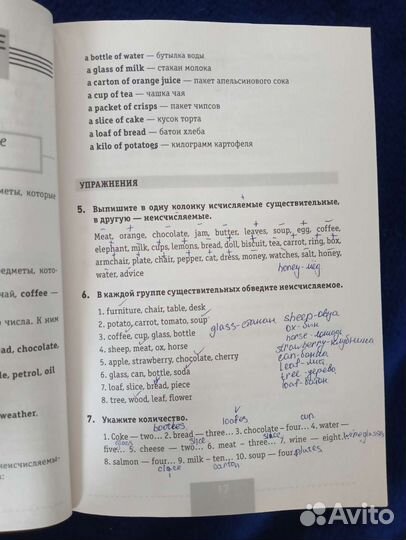 a bottle of water — бутылка воды
a glass of milk — стакан молока
a carton of orange juice — пакет апельсинового сока
a cup of tea — чашка чая
a packet of crisps — пакет чипсов
a slice of cake — кусок торта
a loaf of bread — батон хлеба
a kilo of potatoes — килограмм картофеля
УПРАЖНЕНИЯ
5. Выпишите в одну колонку исчисляемые существительные, в другую — неисчисляемые.
Meat, orange, chocolate, jam, butter, leaves, soup, egg, coffee,
elephant, milk, cups, lemons, bread, doll, biscuit, tea, carrot, ring, box,
armchair, plate, chair, pepper, cat, dress, money, watches, salt, honey,
water, advice
honey-мёд
6. В каждой группе существительных обведите неисчисляемое.
1. furniture, chair, table, desk
2. potato, carrot, tomato, soup
3. coffee, cup, glass, bottle
4. sheep, meat, ox, horse
5. apple, strawberry, chocolate, cherry
6. glass, can, bottle, soda
7. loaf, slice, bread, piece
8. tree, wood, leaf, flower
glass-стакан
sheep-овца
ox-бык
horse-лошадь
strawberry-клубника
can-банка
leaf-лист
tree-дерево
loaf-батон
7. Укажите количество.
bottles loafes cup
1. Coke — two... 2. bread — three... 3. chocolate – four... 4. water —
glass slice slice wineglasses
five... 5. cheese — two... 6. meat – three... 7. wine — eight...
8. salmon — four... 9. milk – ten... 10. soup — four
plates
slice carton
17
ете
меты, которые
едметы, кото-
чай, coffee —
числа. К ним
ad, chocolate,
le, petrol, oil
weather.
неисчисляемы-
:
Avito